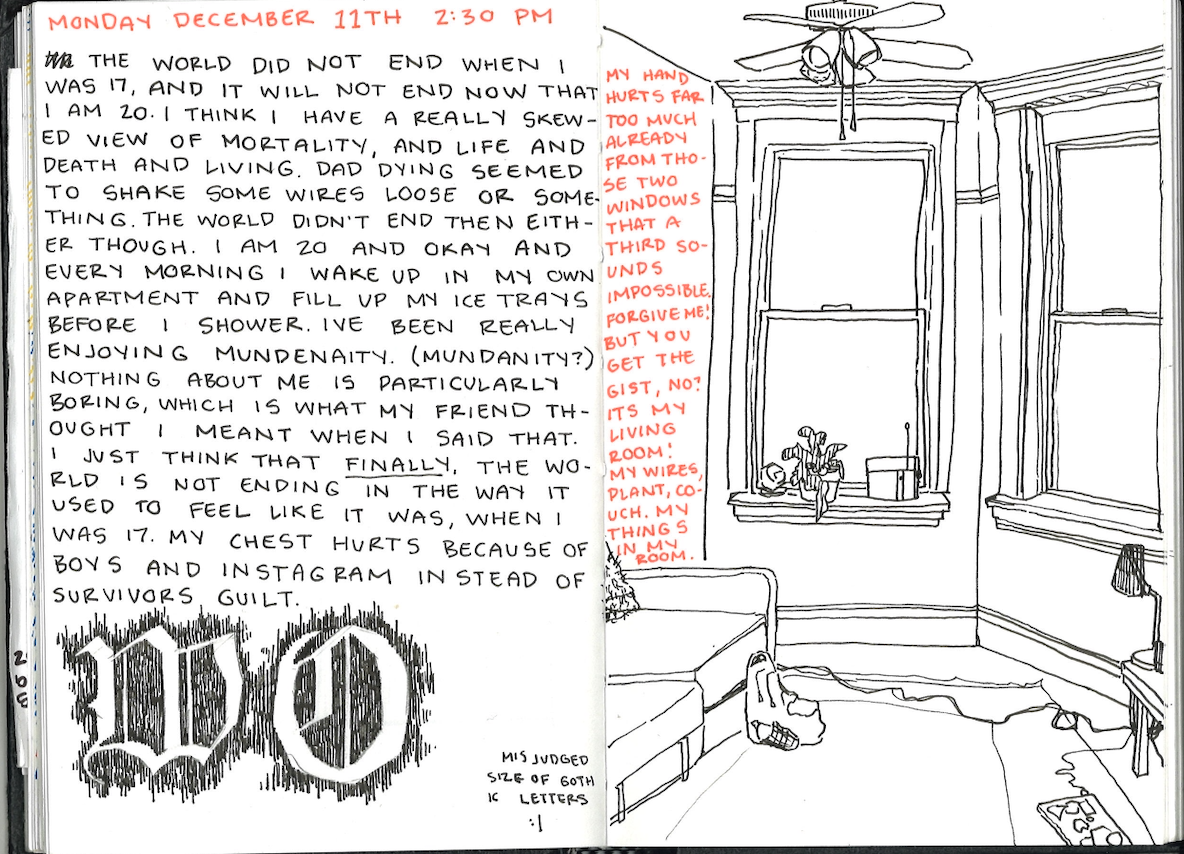 MONDAY DECEMBER 11TH 2:30 PM
THE WORLD DID NOT END WHEN I
WAS 17, AND IT WILL NOT END NOW THAT
I AM 20. I THINK I HAVE A REALLY SKEW-
ED VIEW OF MORTALITY, AND LIFE AND
DEATH AND LIVING. DAD DYING SEEMED
TO SHAKE SOME WIRES LOOSE OR SOME-
THING. THE WORLD DIDN'T END THEN EITH-
ER THOUGH. I AM 20 AND OKAY AND
EVERY MORNING I WAKE UP IN MY OWN
APARTMENT AND FILL UP MY ICE TRAYS
BEFORE I SHOWER. IVE BEEN REALLY
ENJOYING MUNDENAITY. (MUNDANITY?)
NOTHING ABOUT ME IS PARTICULARLY
BORING, WHICH IS WHAT MY FRIEND TH-
OUGHT I MEANT WHEN I SAID THAT.
I JUST THINK THAT FINALLY, THE WO-
RLD IS NOT ENDING IN THE WAY IT
USED TO FEEL LIKE IT WAS, WHEN I
WAS 17. MY CHEST HURTS BECAUSE OF
BOYS AND INSTAGRAM INSTEAD OF
SURVIVORS GUILT.
WO
MISJUDGED
SIZE OF GOTH
IC LETTERS
:|
MY HAND
HURTS FAR
TOO MUCH
ALREADY
FROM THO-
SE TWO
WINDOWS
THAT A
THIRD SO-
UNDS
IMPOSSIBLE.
FORGIVE ME!
BUT YOU
GET THE
GIST, NO?
ITS MY
LIVING
ROOM!
MY WIRES,
PLANT, CO-
UCH. MY
THINGS
IN MY
ROOM.